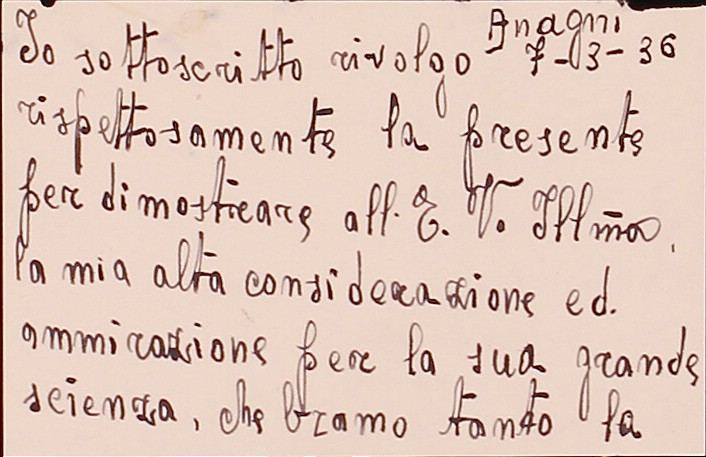 Anagni
Io sottoscritto rivolgo 7-3-36
rispettosamente la presente
per dimostrare all. E. V. Illma,
la mia alta considerazione ed.
ammirazione per la sua grande
scienza, che bramo tanto la